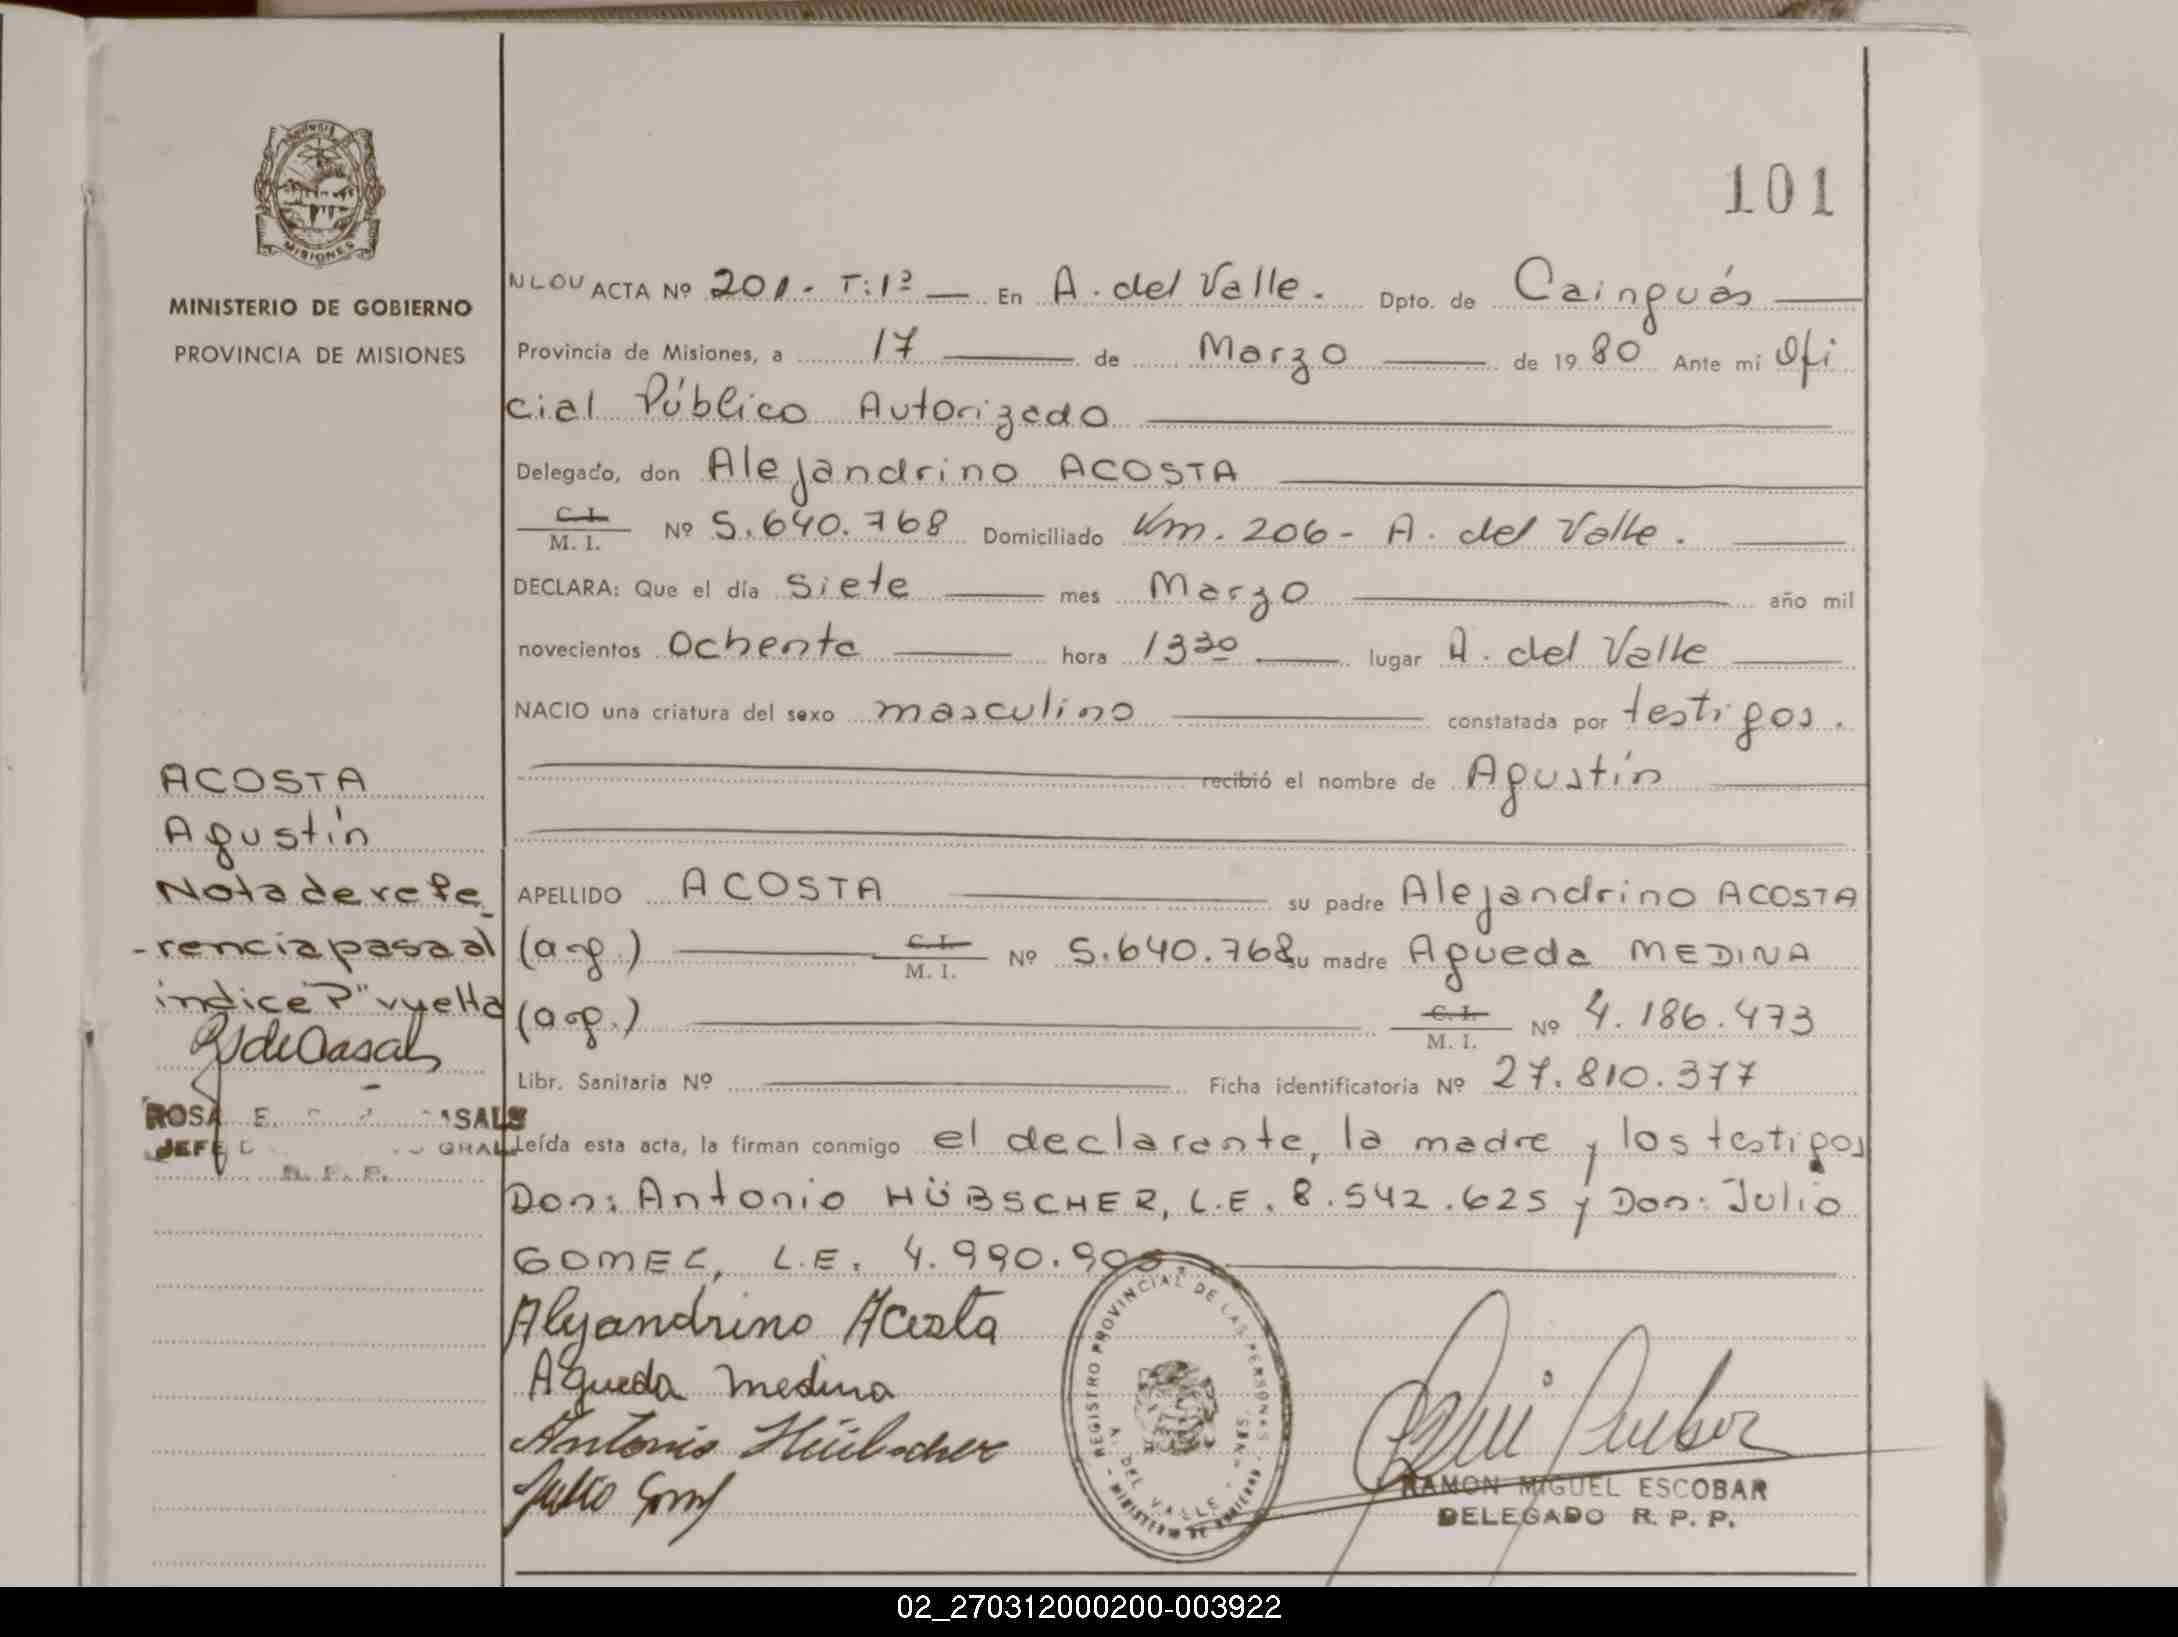 101
MISIONES
MINISTERIO DE GOBIERNO
PROVINCIA DE MISIONES
ACTA Nº 201.- T:1º — En A. del Valle. Dpto. de Cainguás
Provincia de Misiones, a 17 de Marzo de 1980 Ante mi Ofi
cial Público Autorizado
Delegado, don Alejandrino ACOSTA
C. I.
M. I. Nº 5.640.768 Domiciliado Km. 206 - A. del Valle.
DECLARA: Que el día siete mes Marzo año mil
novecientos Ochenta hora 1330 lugar A. del Valle
NACIO una criatura del sexo masculino constatada por testigos.
recibió el nombre de Agustín
APELLIDO ACOSTA su padre Alejandrino ACOSTA
(arg.) C. I.
M. I. Nº 5.640.768 su madre Agueda MEDINA
(arg.) C. I.
M. I. Nº 4.186.473
Libr. Sanitaria Nº Ficha identificatoria Nº 27.810.377
Leída esta acta, la firman conmigo el declarante, la madre y los testigos
Don: Antonio HÜBSCHER, L.E. 8.542.625 y Don: Julio
GOMEZ, L.E. 4.990.90
Alejandrino Acosta
Agueda medina
Antonio Hüübscher
Julio
REGISTRO PROVINCIAL DE LAS PERSONAS
A. DEL VALLE
MINISTERIO DE
RAMON MIGUEL ESCOBAR
DELEGADO R. P. P.
ACOSTA
Agustín
Nota de refe
-rencia pasa al
indice "P" vuelta
ROSA E.
JEFE
R. P. P.
02_270312000200-003922